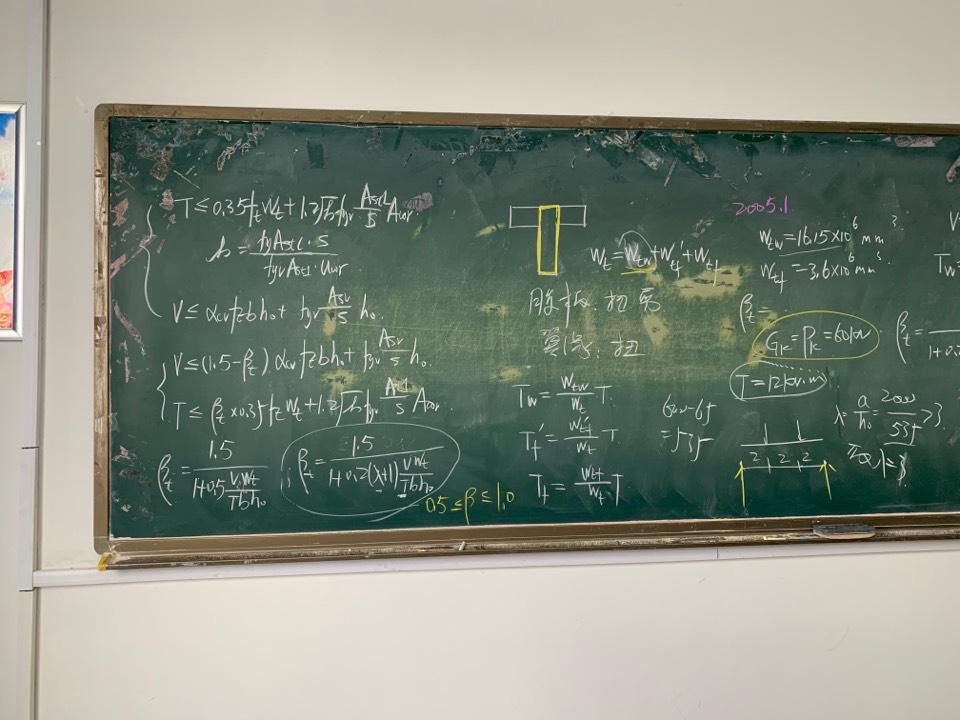 T ≤ 0.35 ft Wt + 1.2 √ζ fyv Ast1/S Acor
ζ = fy Astl · S / fyv Ast1 · Ucor
V ≤ αcv ft b h0 + fyv Asv/S h0
V ≤ (1.5 - βt) αcv ft b h0 + fyv Asv/S h0
T ≤ βt × 0.35 ft Wt + 1.2 √ζ fyv Ast1/S Acor
βt = 1.5 / 1+0.5 V Wt/T b h0 ; βt = 1.5 / 1+0.2(λ+1) V Wt/T b h0
0.5 ≤ β ≤ 1.0
Wt = Wtw + Wtf' + Wtf
腹板: 扭剪
翼缘: 扭
Tw = Wtw/Wt T
Tf' = Wtf'/Wt T
Tf = Wtf/Wt T
600-65
=535
2005.1
Wtw = 16.15×10⁶ mm³
Wtf = 3.6×10⁶ mm³
βt =
Gk = Pk = 60kN
T = 12kN·m
λ = a/h0 = 2000/535 > 3
2 2 2
V
Tw =
βt =
1+0.2